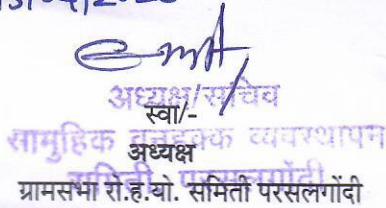 अध्यक्ष/सचिव
स्वा/-
सामुहिक वनहक्क व्यवस्थापन
अध्यक्ष
समिती परसलगोंदी
ग्रामसभा रो.ह.यो. समिती परसलगोंदी